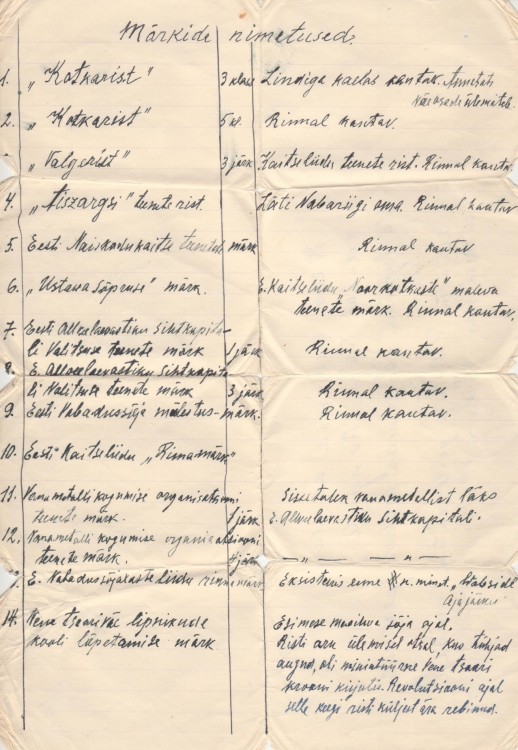 Märkide nimetused.
1. „Kotkarist" 3 klass Lindiga kaelas kantav. Annetati
kõrgemate ülematele.
2. „Kotkarist" 5 kl. Rinnal kantav.
„Valgerist" 3 järk Kaitseliidu teenete rist. Rinnal kantav.
4. „Aiszargsi" teenete rist. Läti Vabariigi oma. Rinnal kantav
5. Eesti Naiskodukaitse teenete märk Rinnal kantav
6. „Ustava Sõpruse" märk. E. Kaitseliidu „Noorkotkaste" maleva
teenete märk. Rinnal kantav.
7. Eesti Allveelaevastiku Sihtkapita-
li Valitsuse teenete märk 1 järk Rinnal kantav.
8. E. Allveelaevastiku Sihtkapita
li Valitsuse teenete märk 3 järk Rinnal kantav.
9. Eesti Vabadussõja mälestus-märk. Rinnal kantav.
10. Eesti Kaitseliidu „Rinnamärk"
11. Vanametalli kogumise organisatsiooni Sissetulek vanametallist läks
teenete märk. 1 järk E. Allveelaevastiku Sihtkapitali.
12. Vanametalli kogumise organisatsiooni
teenete märk. 4 järk — „ — „ —
E. Vabadussõjalaste liidu rinnamärk Eksisteeris enne n. nimet. „
Ajajärku
14. Vene tsaariväe lipnikude Esimese maailma sõja ajal.
kooli lõpetamise märk Risti aru ülemisel otsal, kus tühjad
augud, oli miniatüürne Vene tsaari
krooni kujutis. Revolutsiooni ajal
selle keegi risti küljest ära rebinud.